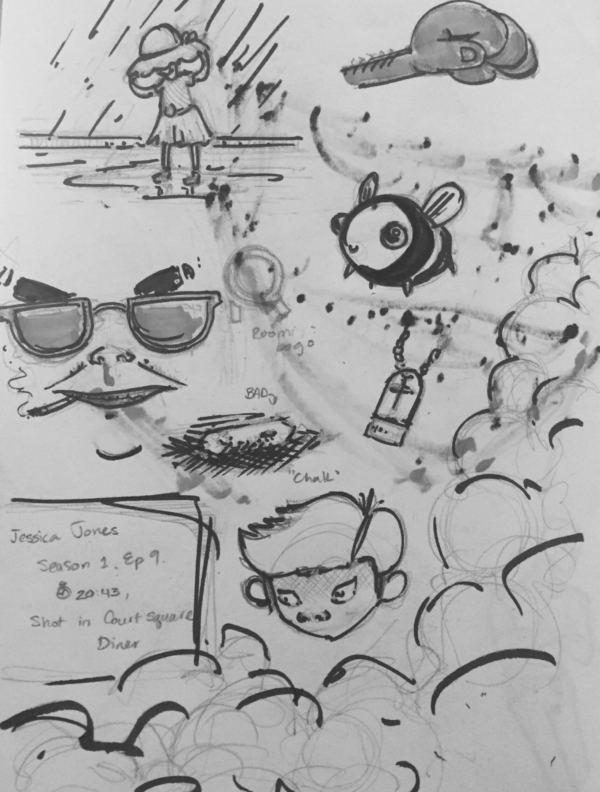 D
Roomi
Logo
BAD
"Chalk"
Jessica Jones
Season 1. Ep 9.
@ 20:43,
Shot in Court square
Diner